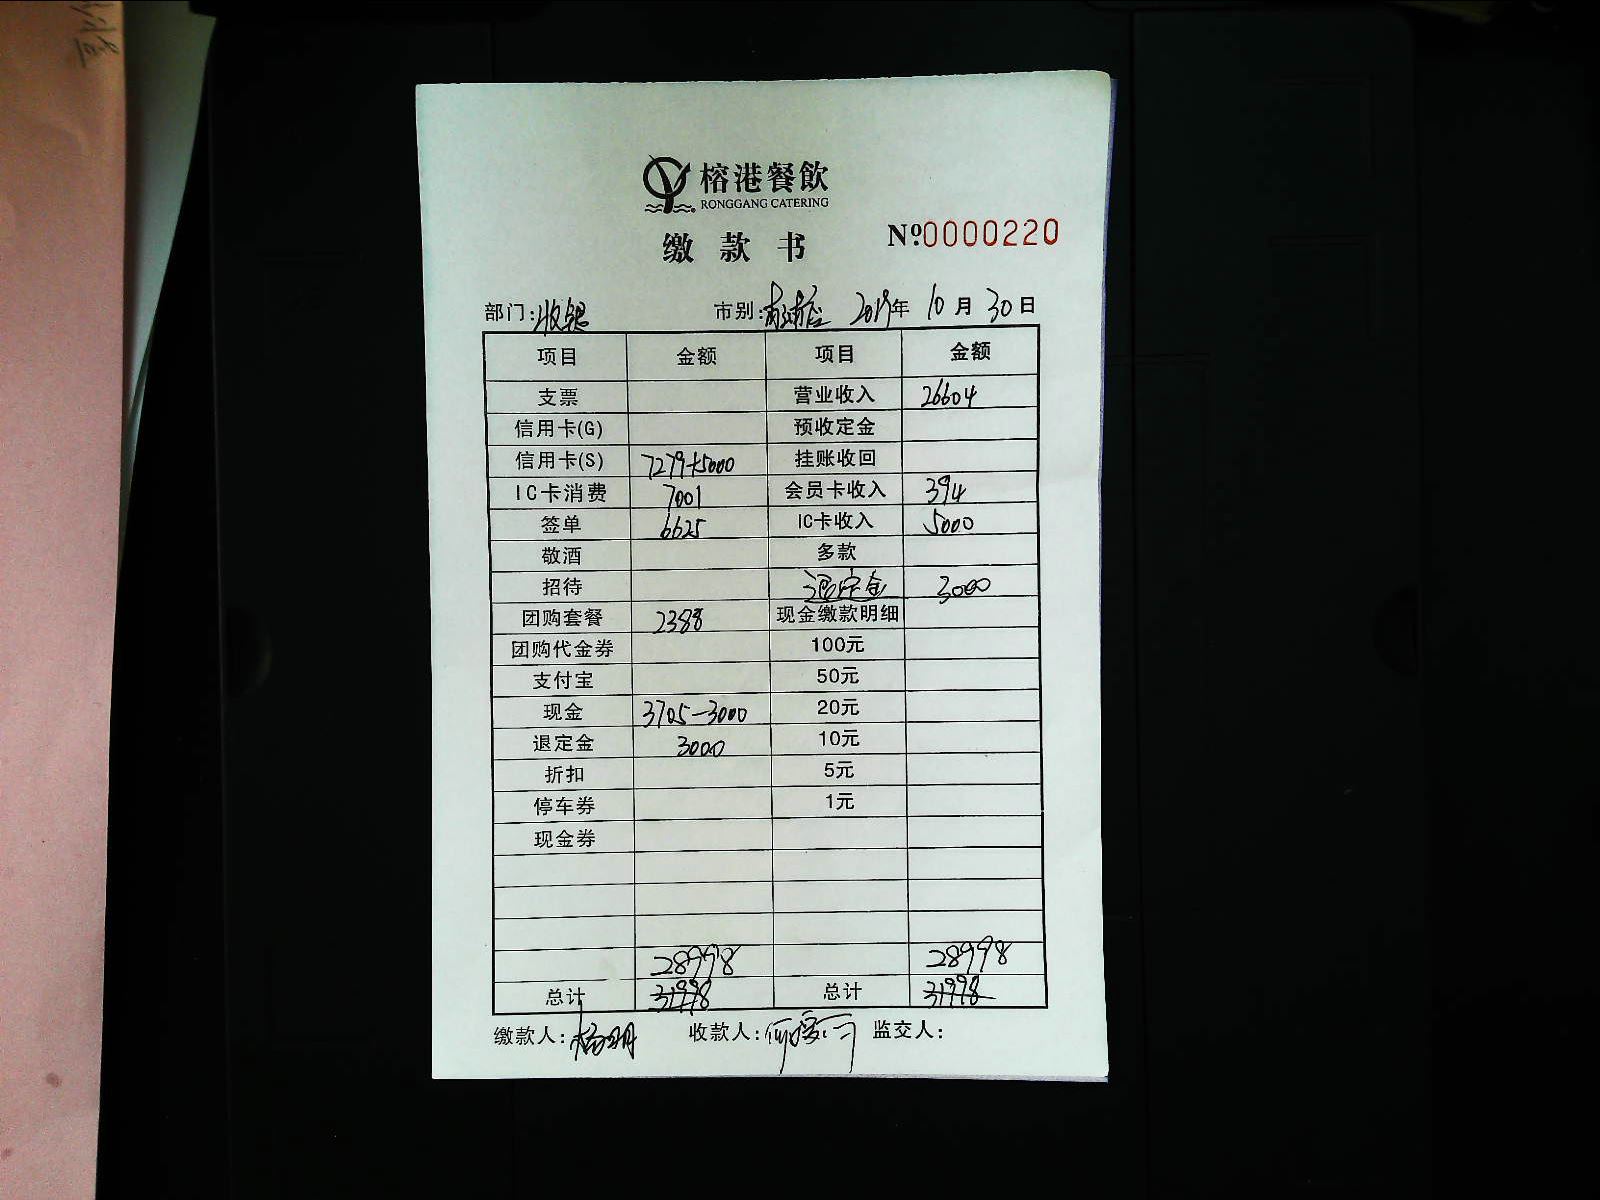 榕港餐飲
RONGGANG CATERING
缴款书
№0000220
部门:收银 市别: 2019年 10月 30日
项目 金额 项目 金额
支票 营业收入 26604
信用卡(G) 预收定金
信用卡(S) 7279+5000 挂账收回
IC卡消费 7001 会员卡收入 394
签单 6625 IC卡收入 5000
敬酒 多款
招待 退定金 3000
团购套餐 2388 现金缴款明细
团购代金券 100元
支付宝 50元
现金 3705-3000 20元
退定金 3000 10元
折扣 5元
停车券 1元
现金券
28998 28998
总计 31998 总计 31998
缴款人: 收款人: 监交人: